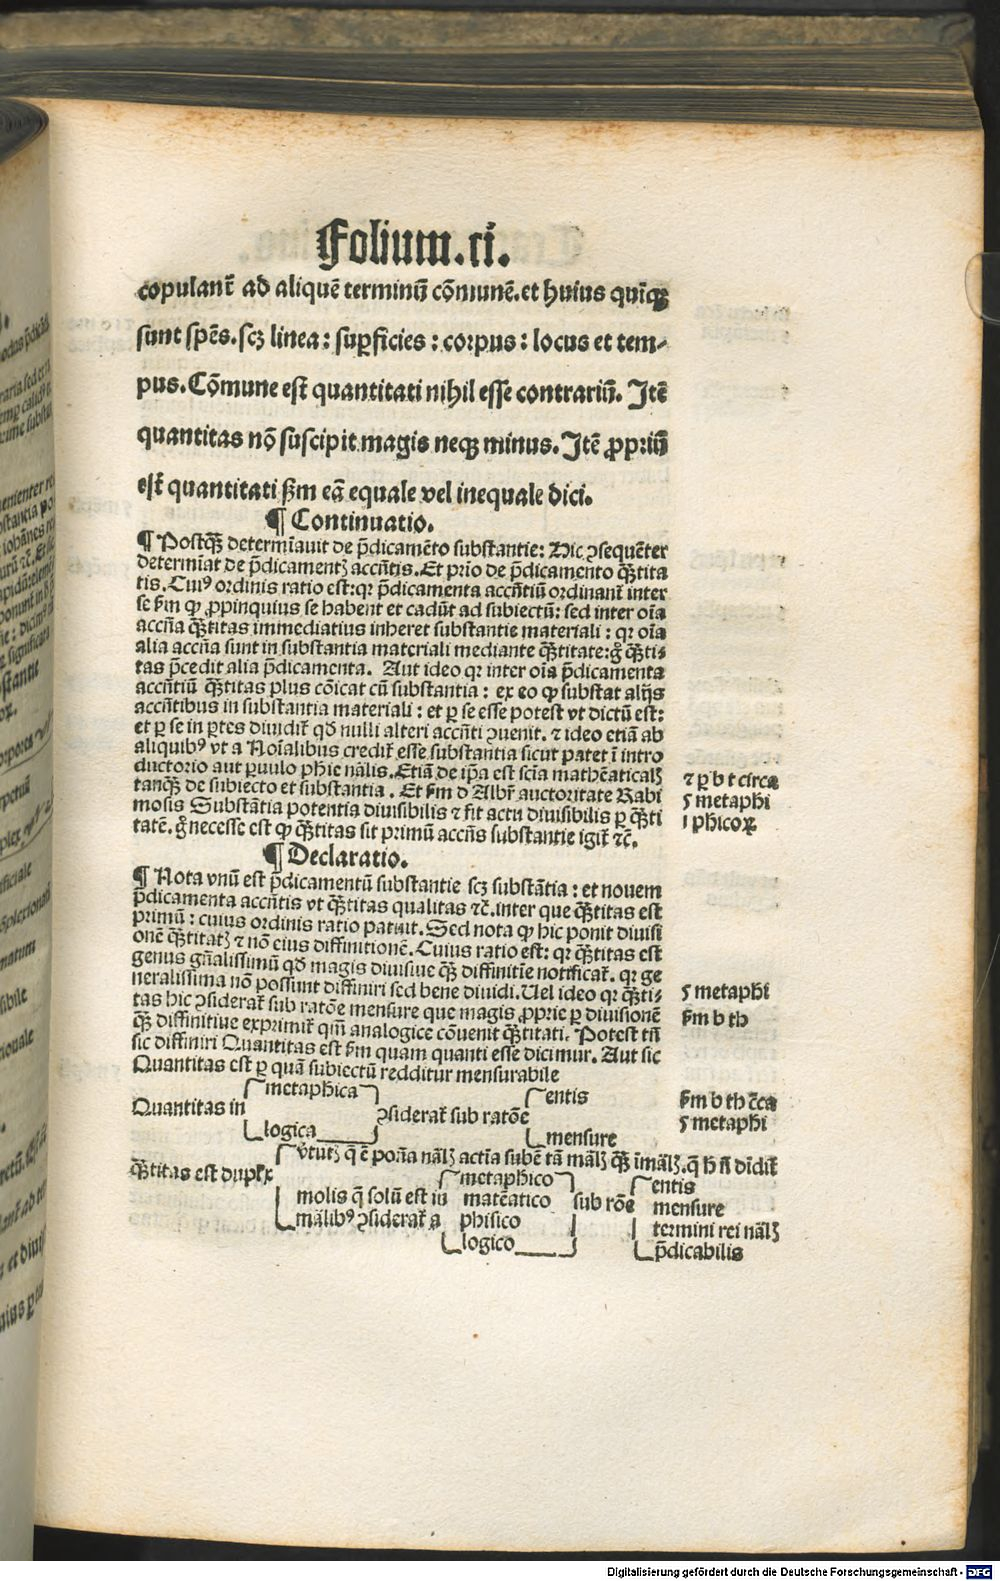 Folium.xi.
copulant᷑ ad aliquē terminū cōmunē.et huius quīqꝫ
sunt spēs.scꝫ linea: suꝑficies: corpus: locus et tem-
pus. Cōmune est quantitati nihil esse contrariū. Itē
quantitas nō suscipit magis neqꝫ minus. Itē ꝓpriū
est quantitati ẜm eā equale vel inequale dici.
¶ Continuatio.
¶ Postq̄ꝫ determīauit de p̄dicamēto substantie: Hic ꝯsequēter
determiat de p̄dicamentꝫ accn̄tis. Et prīo de p̄dicamento q̄ꝫtita
tis. Cuiꝰ ordinis ratio est: qꝛ p̄dicamenta accn̄tiū ordinant᷑ inter
se ẜm ꝙ ꝓpinquius se habent et cadūt ad subiectū: sed inter oīa
accn̄a q̄ꝫtitas immediatius inheret substantie materiali: qꝛ oīa
alia accn̄a sunt in substantia materiali mediante q̄ꝫtitate: gͦ q̄ꝫti-
tas p̄cedit alia p̄dicamenta. Aut ideo qꝛ inter oīa p̄dicamenta
accn̄tiū q̄ꝫtitas plus cōicat cū substantia: ex eo ꝙ substat alijs
accn̄tibus in substantia materiali: et ꝑ se esse potest vt dictū est:
et ꝑ se in ꝑtes diuidit᷑ qd̄ nulli alteri accn̄ti ꝯuenit. ⁊ ideo etiā ab
aliquibꝰ vt a Noīalibus credit᷑ esse substantia sicut patet ī intro
ductorio aut ꝑuulo phīe nālis. Etiā de ip̄a est scīa mathēaticalꝫ
tanq̄ꝫ de subiecto et substantia. Et ẜm d Alber᷑ auctoritate Rabi
mosis Substātia potentia diuisibilis ⁊ fit actu diuisibilis ꝑ q̄ꝫti
tatē. gͦ necesse est ꝙ q̄ꝫtitas sit primū accn̄s substantie igit᷑ ⁊c̄.
⁊ ꝑ b t circa
5 metaphi
i phicoꝝ
¶ Declaratio.
¶ Nota vnū est p̄dicamentū substantie scꝫ substātia: et nouem
p̄dicamenta accn̄tis vt q̄ꝫtitas qualitas ⁊c̄. inter que q̄ꝫtitas est
primū: cuius ordinis ratio patuit. Sed nota ꝙ hic ponit diuisi
onē q̄ꝫtitatꝫ ⁊ nō eius diffinitionē. Cuius ratio est: qꝛ q̄ꝫtitas est
genus gn̄alissimū qd̄ magis diuisiue q̄ꝫ diffinitīe notificat᷑. qꝛ ge
neralissima nō possunt diffiniri sed bene diuidi. Uel ideo qꝛ q̄ꝫti-
tas hic ꝯsiderat᷑ sub ratōe mensure que magis ꝓprie ꝑ diuisionē
q̄ꝫ diffinitiue exprimit᷑ qm̄ analogice cōuenit q̄ꝫtitati. Potest tn̄
sic diffiniri Quantitas est ẜm quam quanti esse dicimur. Aut sic
Quantitas est ꝑ quā subiectū redditur mensurabile
5 metaphi
ẜm b th
Quantitas in
metaphica
logica
ꝯsiderat᷑ sub ratōe
entis
mensure
ẜm b th c̄ca
5 metaphi
q̄ꝫtitas est duplex
v̄tutꝫ q̄ ē poñа nālꝫ actīa subē tā mālꝫ q̄ꝫ īmālꝫ. q̄ h n̄ dīdit᷑
molis q̄ solū est in
mālibꝰ ꝯsiderat᷑ a
metaphico
matēatico
phisico
logico
sub rōe
entis
mensure
termini rei nālꝫ
p̄dicabilis
Digitalisierung gefördert durch die Deutsche Forschungsgemeinschaft - DFG